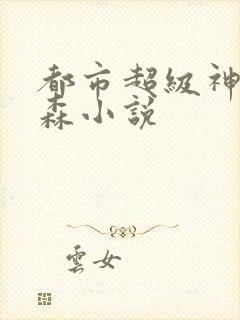 都市超級神
森小説
雲女